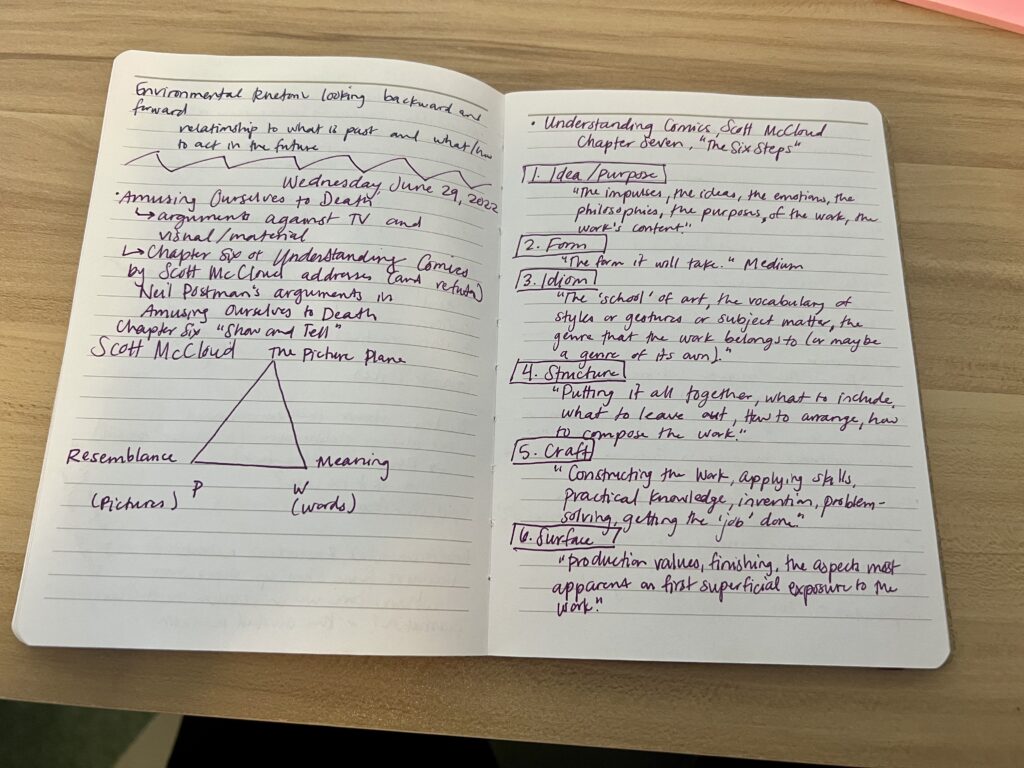 Environmental Rhetoric looking backward and
forward
relationship to what is past and what/how
to act in the future
Wednesday, June 29, 2022
• Amusing Ourselves to Death
↳ arguments against TV and
visual/material
↳ Chapter six of Understanding Comics
by Scott McCloud addresses (and refutes)
Neil Postman's arguments in
Amusing Ourselves to Death
Chapter Six "Show and Tell"
Scott McCloud
The Picture Plane
Resemblance
Meaning
P
W
(Pictures)
(words)
• Understanding Comics, Scott McCloud
Chapter Seven, "The Six Steps"
1. Idea/Purpose
"The impulses, the ideas, the emotions, the
philosophies, the purposes, of the work, the
work's content."
2. Form
"The form it will take." Medium
3. Idiom
"The 'school' of art, the vocabulary of
styles or gestures or subject matter, the
genre that the work belongs to (or maybe
a genre of its own)."
4. Structure
"Putting it all together, what to include,
what to leave out, how to arrange, how
to compose the work."
5. Craft
"Constructing the work, applying skills,
practical knowledge, invention, problem-
solving, getting the 'job' done."
6. Surface
"production values, finishing, the aspects most
apparent on first superficial exposure to the
work."